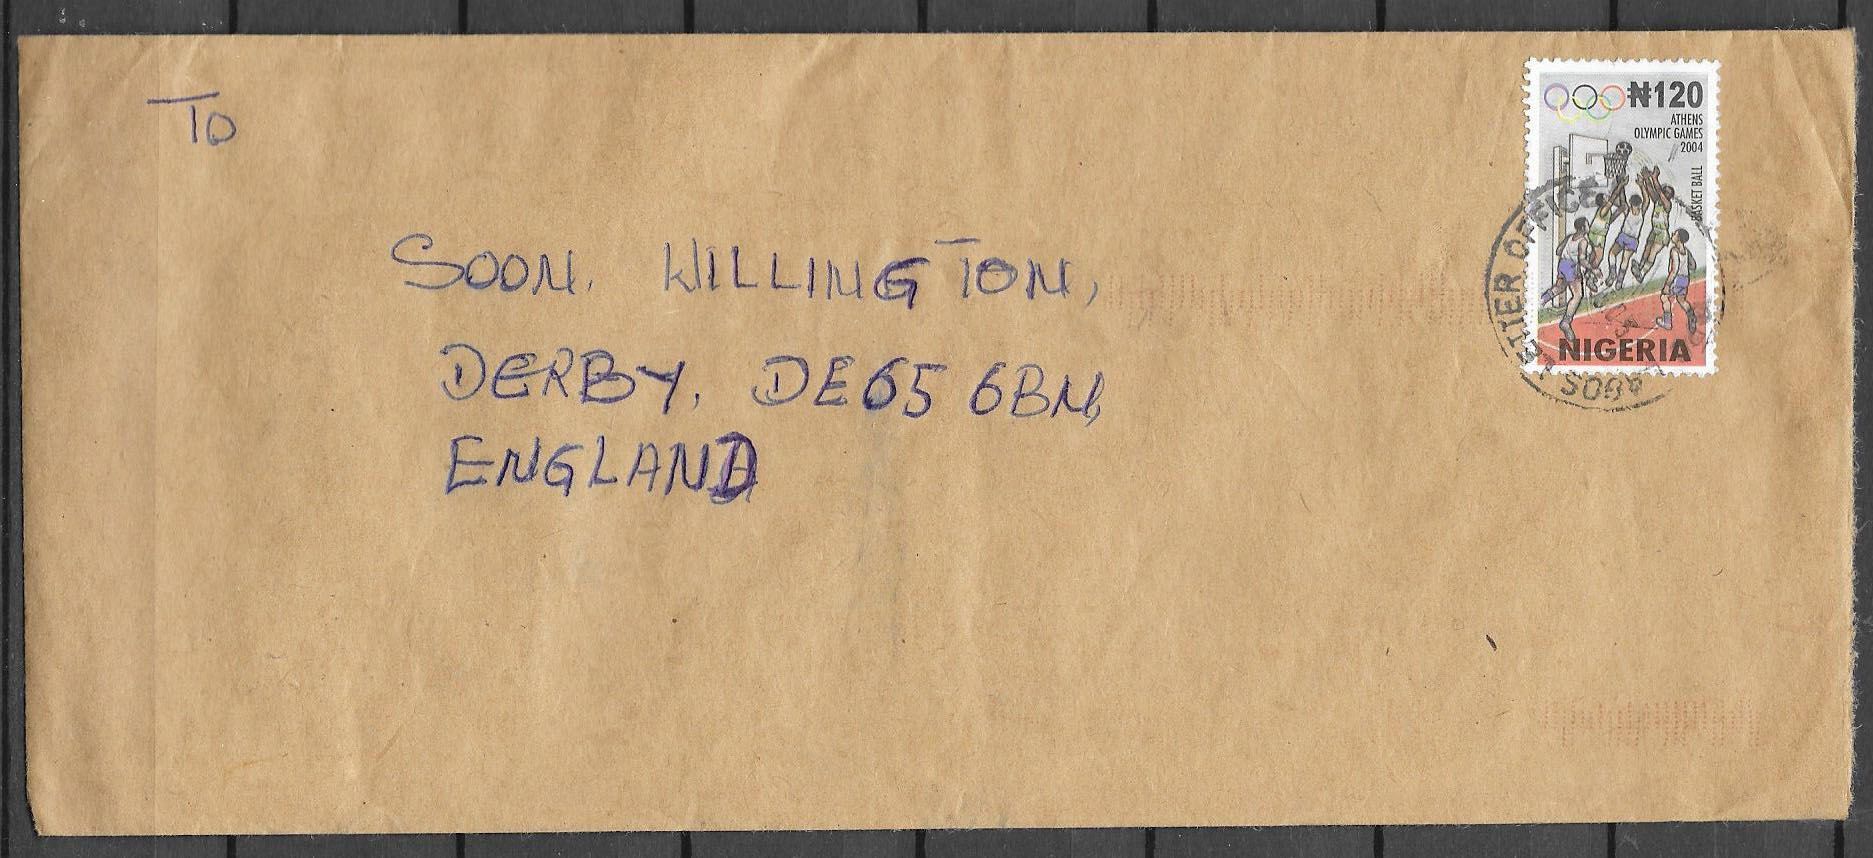 TO
SOON. WILLINGTON,
DERBY, DE65 6BN,
ENGLAND
₦120
ATHENS
OLYMPIC GAMES
2004
BASKET BALL
NIGERIA
LETTER OFFICE
LAGOS